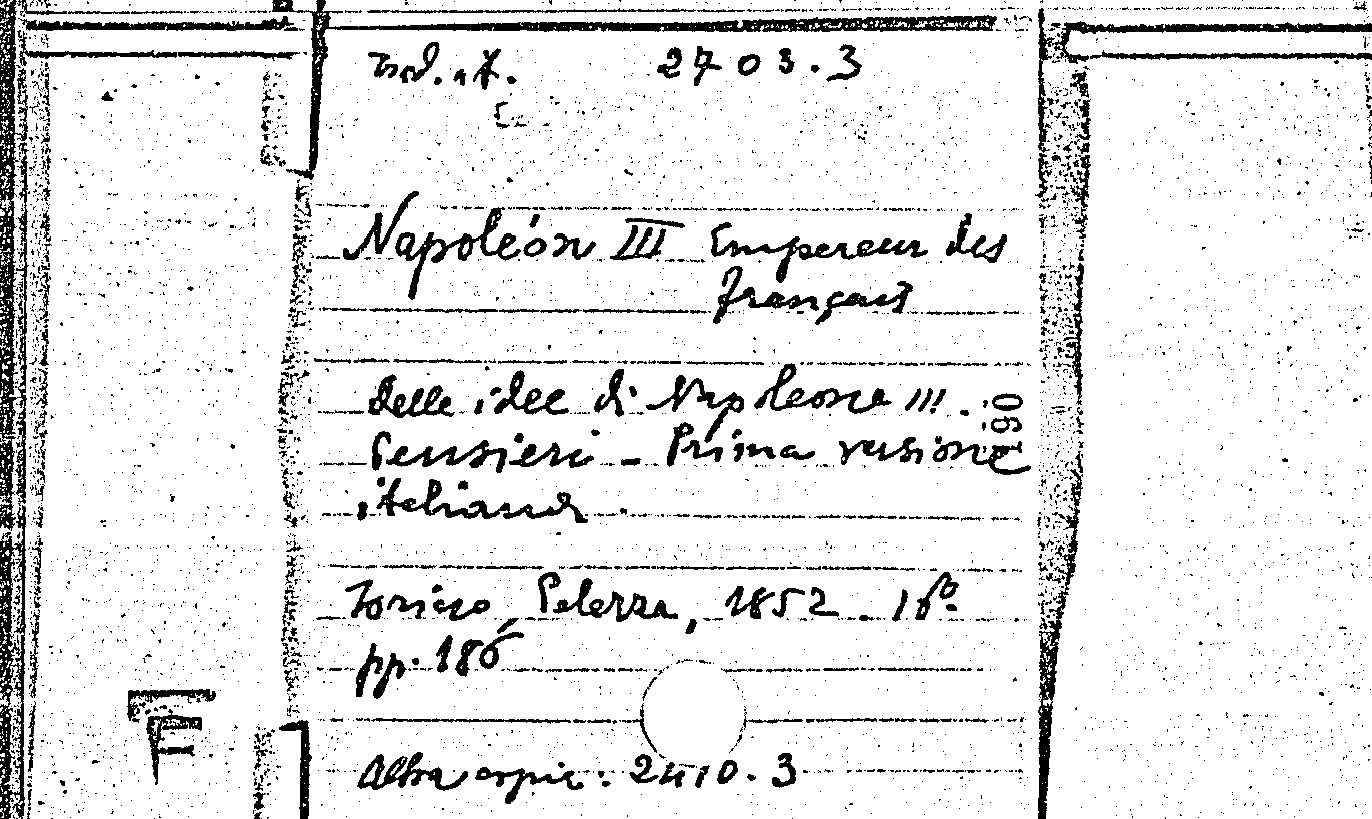 2703.3
Napoléon III Empereur des
français
delle idee di Napoleone III.
Pensieri - Prima versione
italiana.
Torino, Pelazza, 1852. 16º.
pp. 186
Altra copia: 2410.3